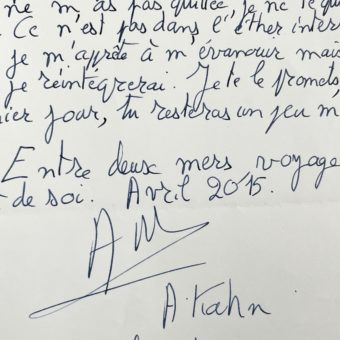 ne m'as pas quittée, je ne te qui
. Ce n'est pas dans l'éther inters
je m'aprête à m'évanouir mais
je réintégrerai. Je te le promets
nier jour, tu resteras un jeu m
Entre deux mers voyage
de soi. Avril 2015.
AM
A. Kahn